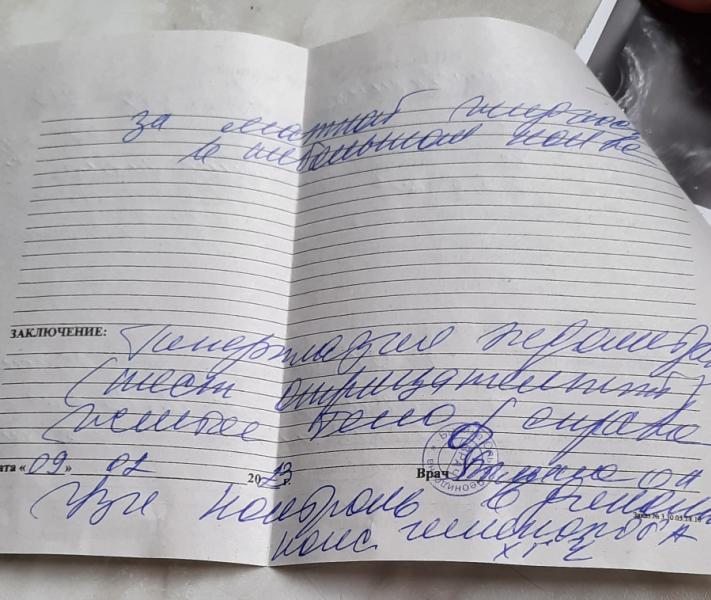 за маткой
в небольшом кол-ве
ЗАКЛЮЧЕНИЕ: Гиперплазия эндометрия
(тест отрицательный)
желтое тело справа
ата «09» 02 2023 г. Врач
Узи контроль в динамике
конс гинеколога
ХГЧ